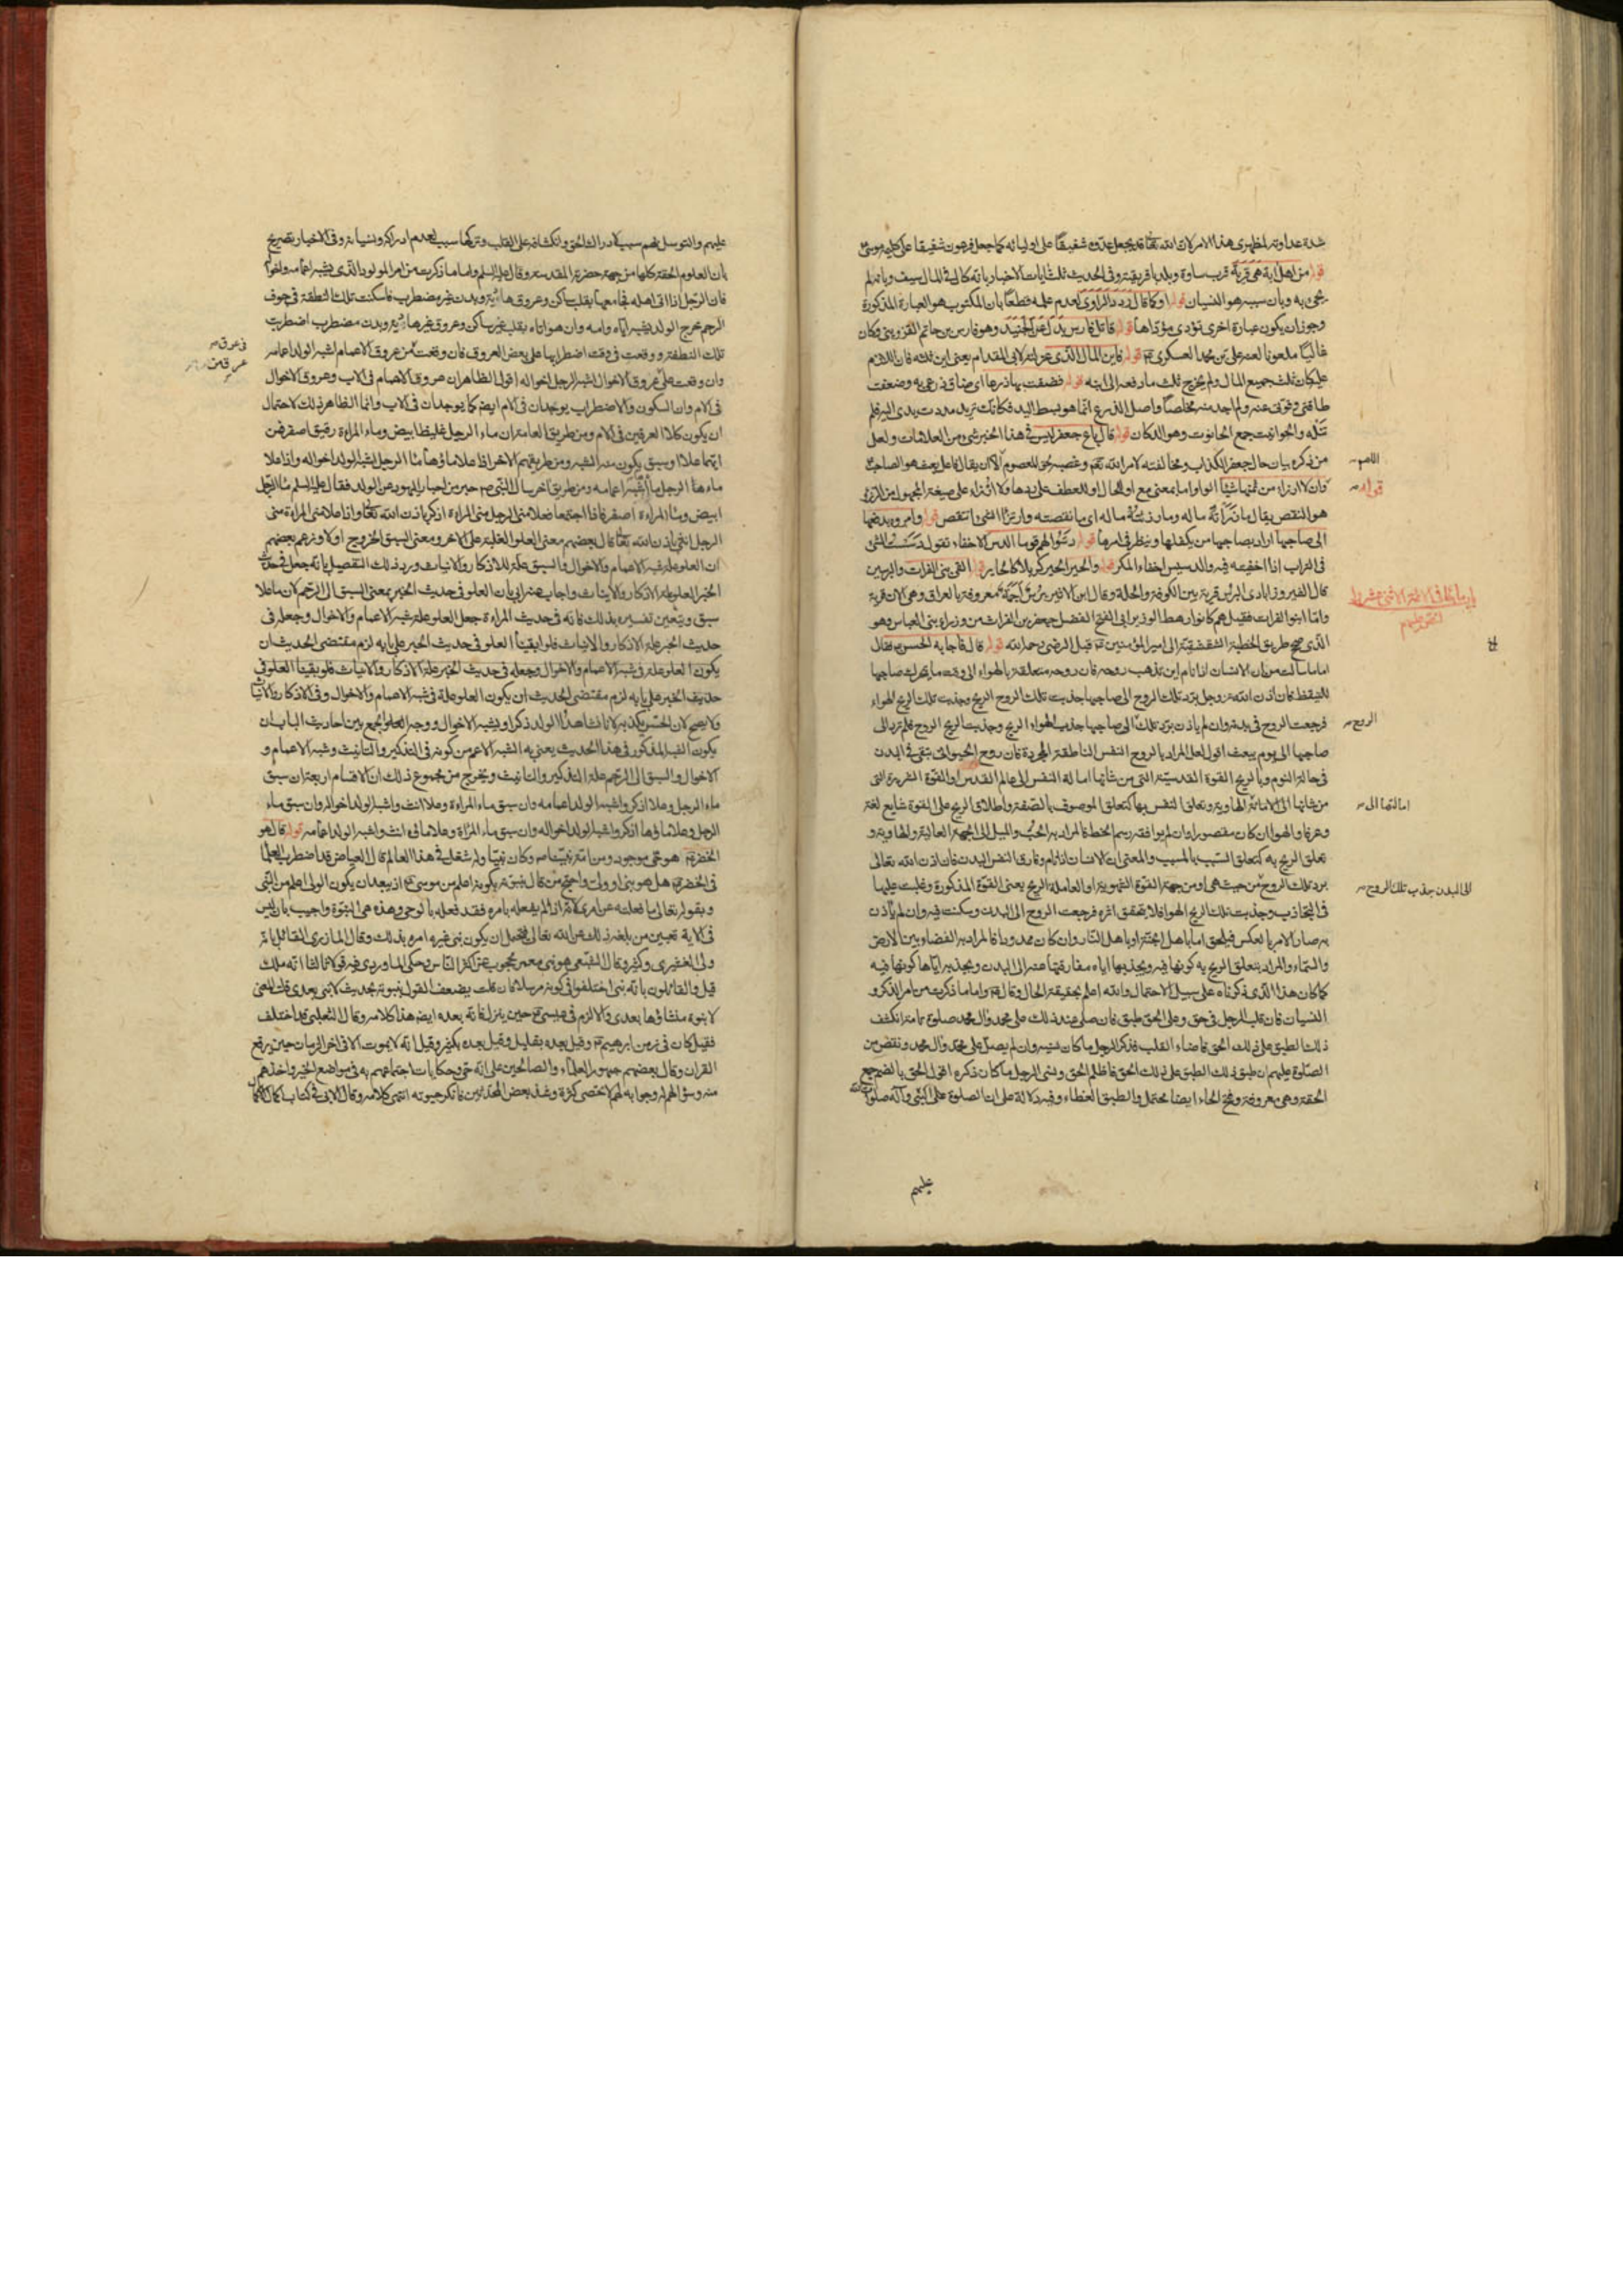 شدة عداوته لمظهري هذا الامر لان الله تعالى قد يجعل عدوه شفيقا على اوليائه كما جعل فرعون شفيقا على كليمه موسى
قوله من اهل آبة هي قرية قرب ساوة وبلد بافريقية وفي الحديث ثلث آيات الاخبار بانه كان في المال سيف وبانه لم
يجئ به وبان سببه هو النسيان قوله او كما قال تردد الراوي لعدم علمه قطعا بان المكتوب هو العبارة المذكورة
وجوز ان يكون عبارة اخرى تؤدي مؤداها قوله قاتل فارس بدل عن الجنيد وهو فارس بن حاتم القزويني وكان
غاليا ملعونا لعنه علي بن محمد العسكري قوله فاين المال الذي عزلته لابي المقدام يعني ابن ثلثه فان اللازم
عليه كان ثلث جميع المال ولم يخرج ثلث ما دفعه الى ابنه قوله فضقت بها ذرعا اي ضاق ذرعي به وضعفت
طاقتي وقوتي عنه ولم اجد منه مخلصا واصل الذرع انما هو بسط اليد فكانك تريد مددت يدي اليه فلم
تنله والحوانيت جمع الحانوت وهو الدكان قوله قال باع جعفر ليس في هذا الخبر شئ من العلامات ولعل
من ذكره بيان حال جعفر الكذاب ومخالفته لامر الله تعالى وغصبه حق المعصوم الا ان يقال فاعل يعف هو الصاحب
وان لا ارزاء من ثمنها شيئا الواو اما بمعنى مع او للحال او للعطف على ردها ولا ارزاء على صيغة المجهول من الرزء
هو النقص يقال ما رزأته ماله وما رزئته ماله اي ما نقصته وارتزأ الشئ انتقص قوله وامره بدفعها
الى صاحبها اراد بصاحبها من يكفلها وينظر في امرها قوله دسوا لهم قوما الدس الاخفاء تقول دسست الشئ
في التراب اذا اخفيته فيه والدسيس اخفاء المكر قوله والحير الحير كربلا كالحاير قوله القى بني الفرات والبرسين
قال الفيروزابادي البرس قرية بين الكوفة والحلة وقال ابن الاثير برس اجمة معروفة بالعراق وهي الان قرية
واما ابنوا الفرات فقيل هم كانوا رهط الوزير ابي الفتح الفضل جعفر بن الفرات من وزراء بني العباس وهو
الذي صحح طريق الخطبة الشقشقية الى امير المؤمنين قبل الرضي رحمه الله قوله قال فاجابه الحسن فقال
اما ما سالت عنه من ان الانسان اذا نام اين تذهب روحه فان روحه متعلقة بالهواء الى وقت ما يتحرك صاحبها
لليقظة فان اذن الله عز وجل برد تلك الروح الى صاحبها جذبت تلك الروح الريح وجذبت تلك الريح الهواء
فرجعت الروح في بدنه وان لم ياذن برد تلك الى صاحبها جذب الهواء الريح وجذبت الريح الروح فلم ترد الى
صاحبها الى يوم يبعث اقول لعل المراد بالروح النفس الناطقة المجردة فان روح الحيواني تبقى في البدن
في حالة النوم وبالريح القوة القدسية التي من شانها امالة النفس الى عالم القدس او القوة الشريرة التي
من شانها الى الامانة الهاوية وتعلق النفس بها كتعلق الموصوف بالصفة واطلاق الريح على القوة شايع لغة
وعرفا والهوا ان كان مقصورا وان لم يوافقه رسم الخط فالمراد به الحب والميل الى الجهة العالية والهاوية و
تعلق الريح به كتعلق السبب بالمسبب والمعنى ان الانسان اذا نام وفارق النفس البدن فان اذن الله تعالى
برد تلك الروح من حيث هي او من جهة القوة الشهوية او العاملة الريح يعني القوة المذكورة وغلبت عليها
في التجاذب وجذبت تلك الريح الهوا فلا يتحقق اثره فرجعت الروح الى البدن وسكنت فيه وان لم ياذن
به صار الامر بالعكس فيلحق اما باهل الجنة او باهل النار وان كان ممدودا فالمراد به الفضاء بين الارض
والسماء والمراد بتعلق الريح به كونها فيه وبجذبها اياه مفارقتها عنه الى البدن وبجذبه اياها كونها فيه
كما كان هذا الذي ذكرناه على سبيل الاحتمال والله اعلم بحقيقة الحال وقال واما ما ذكرت من امر الذكر و
النسيان فان قلب الرجل في حق وعلى الحق طبق فان صلى عند ذلك على محمد وآل محمد صلوة تامة انكشف
ذلك الطبق على ذلك الحق فاضاء القلب فذكر الرجل ما كان نسيه وان لم يصل على محمد وآل محمد ونقص من
الصلوة عليهم انطبق ذلك الطبق على ذلك الحق فاظلم الحق ونسي الرجل ما كان ذكره اقول الحق بالضم جمع
الحقة وهي معروفة وفتح الحاء ايضا محتمل والطبق الغطاء وفيه دلالة على ان الصلوة على النبي وآله صلوات الله
عليهم
قوله
باب ما جاء في الائمة الاثني عشر والنص عليهم
الريح
امالتها الى
الى البدن جذب تلك الروح
عليهم والتوسل بهم سبب لادراك الحق وانكشافه على القلب وتركها سبب لعدم ادراكه ونسيانه وفي الاخبار تصريح
بان العلوم الحقة كلها من جهة حضرته المقدسة وقال عليه السلم واما ما ذكرت من امر المولود الذي يشبه اعمامه واخواله
فان الرجل اذا اتى اهله فجامعها بقلب ساكن وعروق هادئة وبدن غير مضطرب فاسكنت تلك النطفة في جوف
الرحم خرج الولد يشبه اباه وامه وان هو اتاه بقلب غير ساكن وعروق غير هادئة وبدن مضطرب اضطربت
تلك النطفة ووقعت في وقت اضطرابها على بعض العروق فان وقعت من عروق الاعمام اشبه الولد اعمامه
وان وقعت على عروق الاخوال اشبه الرجل اخواله اقول الظاهر ان عروق الاعمام في الاب وعروق الاخوال
في الام وان السكون والاضطراب يوجدان في الام ايضا كما يوجدان في الاب وانما الظاهر ذلك لاحتمال
ان يكون كلا العرقين في الام ومن طريق العامة ان ماء الرجل غليظ ابيض وماء المراءة رقيق اصفر فمن
ايهما علا او سبق يكون منه الشبه ومن طريقهم الاخر اذا علا ماؤها ماء الرجل اشبه الولد اخواله واذا علا
ماء الرجل ماءها اشبه اعمامه ومن طريق آخر سال النبي ص حبر من احبار اليهود عن الولد فقال عليه السلم ماء الرجل
ابيض وماء المراءة اصفر فاذا اجتمعا فعلا مني الرجل مني المراءة اذكر باذن الله تعالى واذا علا مني المراءة مني
الرجل انثى باذن الله تعالى قال بعضهم معنى العلو الغلبة على الاخر ومعنى السبق الخروج اولا وزعم بعضهم
ان العلو علة شبه الاعمام والاخوال والسبق علة للاذكار والايناث ورد ذلك التفصيل بانه جعل في حديث
الحبر العلو علة الاذكار والايناث واجاب عنه ابي بان العلو في حديث الحبر بمعنى السبق الى الرحم لان ما علا
سبق ويتعين تفسيره بذلك فانه في حديث المراءة جعل العلو علة شبه الاعمام والاخوال وجعله في
حديث الحبر علة الاذكار والايناث فلو ابقينا العلو في حديث الحبر على بابه لزم مقتضى الحديث ان
يكون العلو علة في شبه الاعمام والاخوال وجعله في حديث الحبر علة الاذكار والايناث فلو بقينا العلو في
حديث الحبر على بابه لزم مقتضى الحديث ان يكون العلو علة في شبه الاعمام والاخوال وفي الاذكار والايناث
ولا يصح لان الحس يكذبه لانا نشاهد الولد ذكرا ويشبه الاخوال ووجه العلو الجمع بين احاديث الباب ان
يكون الشبه المذكور في هذا الحديث يعني به الشبه الاعم من كونه في التذكير والتانيث وشبه الاعمام و
الاخوال والسبق الى الرحم علة التذكير والتانيث ويخرج من مجموع ذلك ان الاقسام اربعة ان سبق
ماء الرجل وعلا اذكر واشبه الولد اعمامه وان سبق ماء المراءة وعلا انث واشبه الولد اخواله وان سبق ماء
الرجل وعلا ماؤها اذكر واشبه الولد اخواله وان سبق ماء المراءة وعلا ماؤه انث واشبه الولد اعمامه قوله قال هو
الخضر هو حي موجود ومن امة نبينا ص وكان نبيا وله شغل في هذا العالم قال العياض قد اضطرب العلماء
في الخضر هل هو نبي او ولي واحتج من قال بنبوته بكونه اعلم من موسى اذ يبعد ان يكون الولي اعلم من النبي
وبقوله تعالى ما فعلته عن امري لانه اذا لم يفعله بامره فقد فعله بالوحي وهذه هي النبوة واجيب بان ليس
في الاية تعيين من بلغه ذلك عن الله تعالى فيحتمل ان يكون نبي غيره امره بذلك وقال المازري القائل بانه
ولي القشيري وكثير وقال الشعبي هو نبي معمر محجوب عن اكثر الناس وحكى الماوردي فيه قولا ثالثا انه ملك
قيل والقائلون بانه نبي اختلفوا في كونه مرسلا فان قلت يضعف القول بنبوته بحديث لا نبي بعدي قلت المعنى
لا نبوة منشاؤها بعدي والا لزم في عيسى حين ينزل فانه بعده ايضا هذا كلامه وقال الثعلبي قد اختلف
فقيل كان في زمن ابرهيم وقيل بعده بقليل وقيل بعده بكثير وقيل انه لا يموت الا في اخر الزمان حين يرفع
القران وقال بعضهم جمهور العلماء والصالحين على انه حي وحكايات اجتماعهم به في مواضع الخير واخذهم
منه وسؤالهم له وجوابه لهم لا تحصى كثرة وشذ بعض المحدثين فانكر حيوته انتهى كلامه وقال الابي في كتاب اكمال الاكمال
في عرق
عرق من